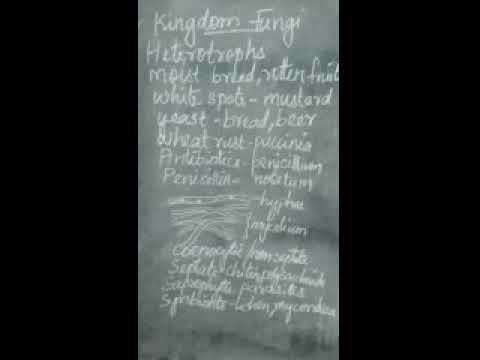 Kingdom Fungi
Heterotrophs
moist bread, rotten fruit
white spots - mustard
yeast - bread, beer
Wheat rust - puccinia
Antibiotics - penicillium
Penicillin - notatum
hyphae
mycelium
coenocytic / nonseptate
Septate - chitin, polysaccharide
Saprophytes parasites
Symbionts - lichen, mycorrhiza